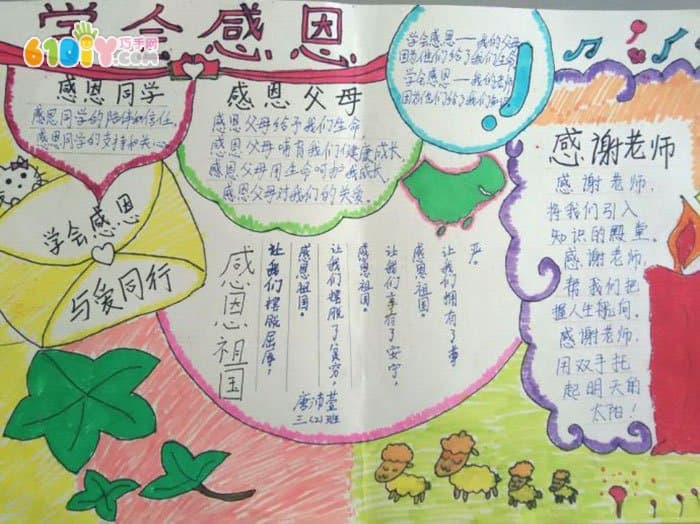 学会感恩
61DIY巧手网
.com
感恩同学
感恩同学的陪伴和信任
感恩同学的支持和关心
感恩父母
感恩父母给予我们生命,
感恩父母哺育我们健康成长,
感恩父母用生命呵护我成长,
感恩父母对我们的关爱。
学会感恩——我的父母
因为他们给了我们生命
学会感恩——我的老师
因为他们给了我们知识
学会感恩
与爱同行
感恩祖国
让我们摆脱屈辱,
感恩祖国。
让我们摆脱了贫穷,
感恩祖国。
让我们享有了安宁,
感恩祖国。
让我们拥有了尊
严。
唐诗莹
三(2)班
感谢老师
感谢老师,
将我们引入
知识的殿堂。
感谢老师,
帮我们把
握人生航向。
感谢老师,
用双手托
起明天的
太阳!